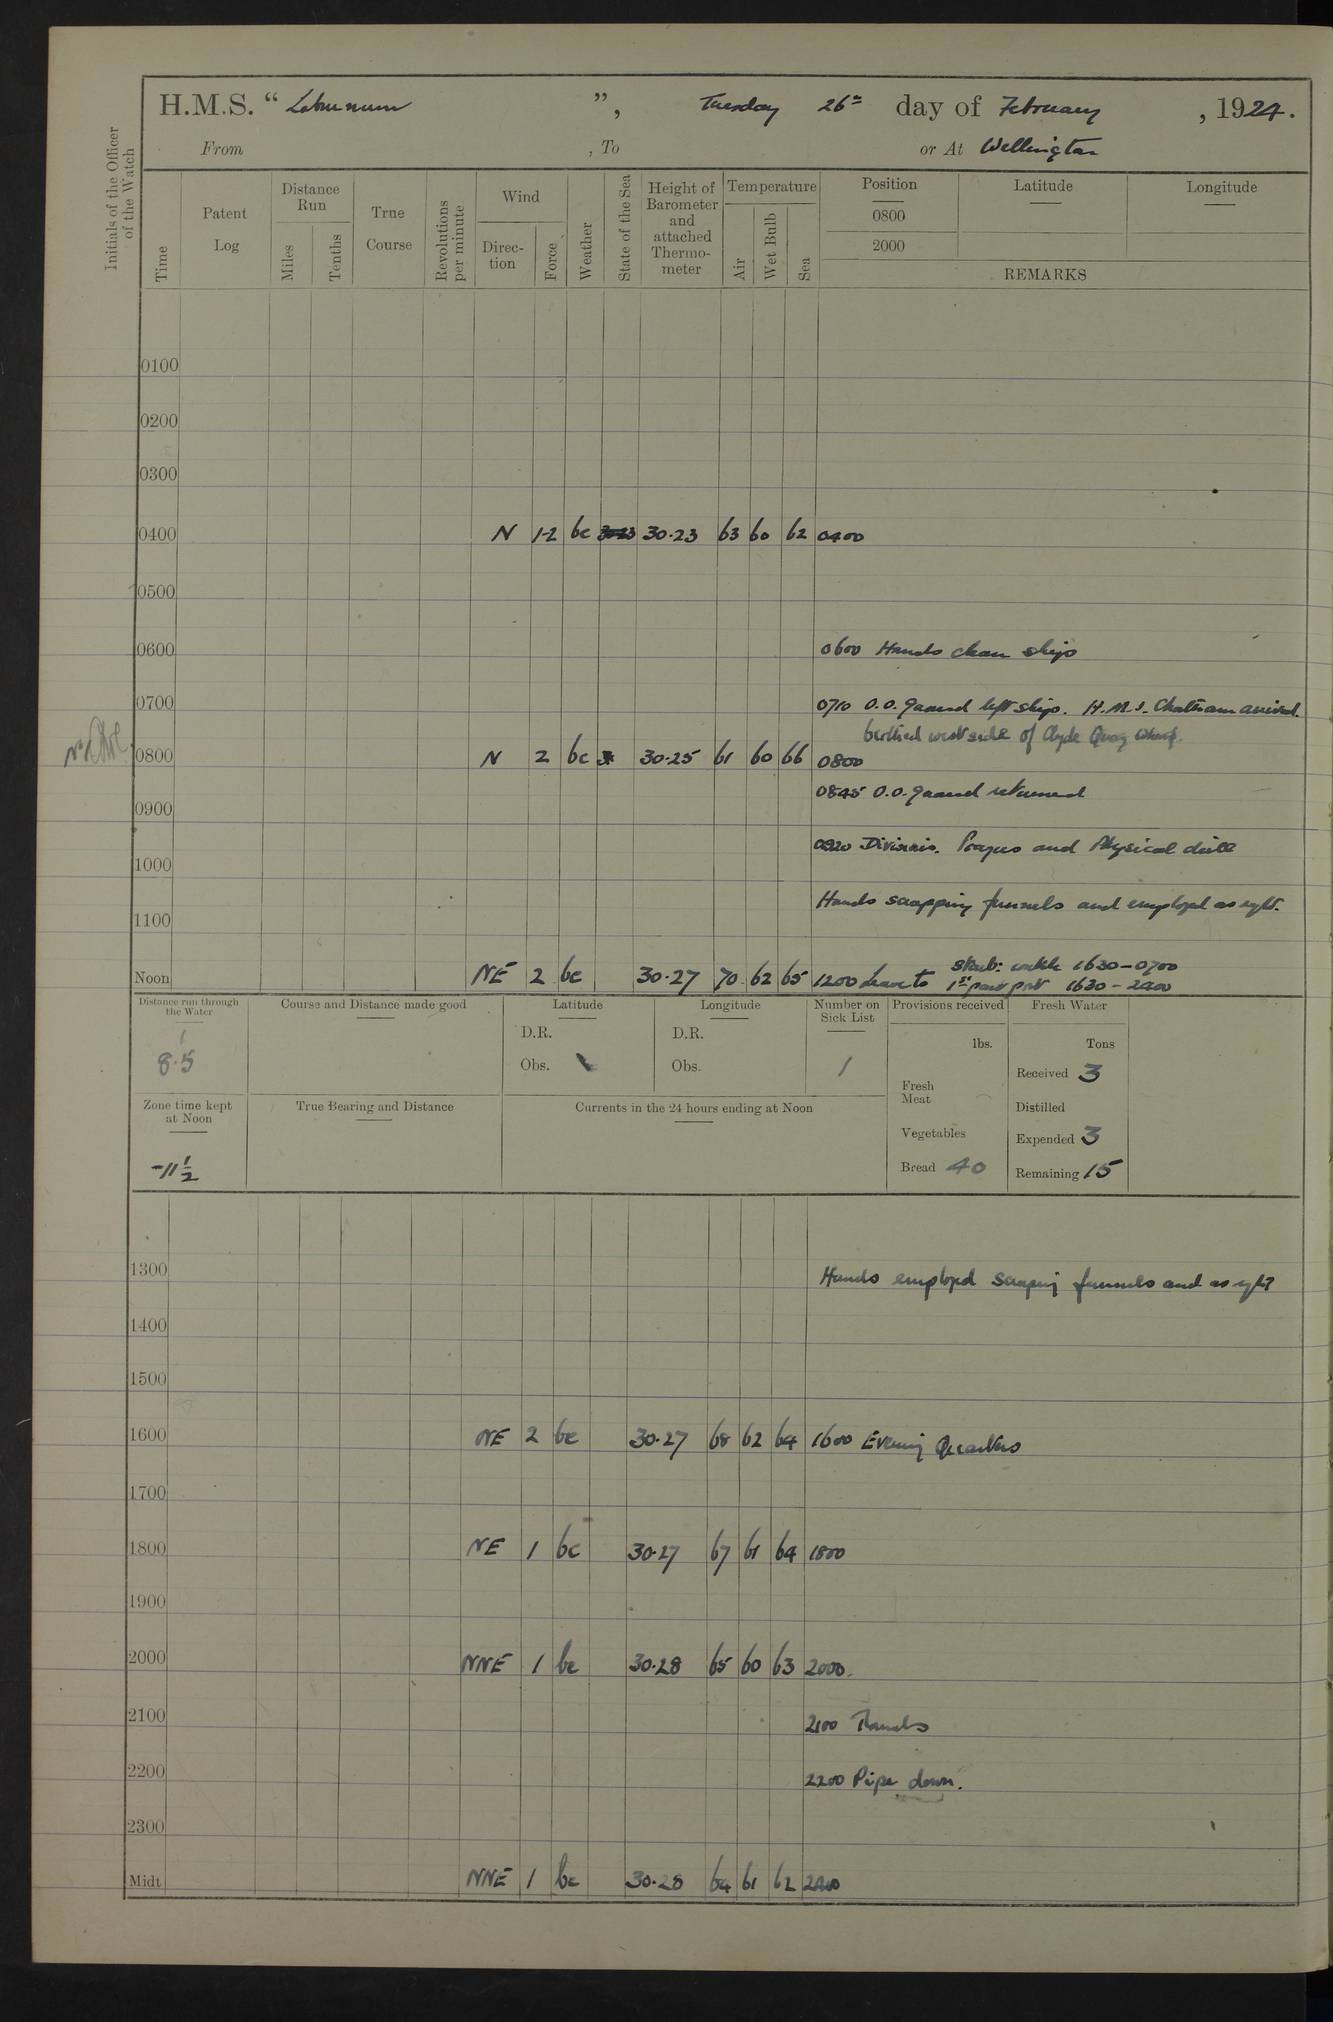 H.M.S. “ Laburnum ”, Tuesday 26th day of February, 1924.
From , To or At Wellington
Initials of the Officer of the Watch
Time
Patent Log
Distance Run
Miles
Tenths
True Course
Revolutions per minute
Wind
Direc-tion
Force
Weather
State of the Sea
Height of Barometer and attached Thermo-meter
Temperature
Air
Wet Bulb
Sea
Position
0800
2000
Latitude
Longitude
REMARKS
0100
0200
0300
0400 N 1-2 bc 30.23 63 60 62 0400
0500
0600 0600 Hands clean ship
0700 0710 O.O. Guard left ship. H.M.S. Chatham arrived.
berthed west side of Clyde Quay wharf.
0800 N 2 bc 30.25 61 60 66 0800
0845 O.O. Guard returned
0900
0920 Divisions. Prayers and Physical drill
1000
Hands scrapping funnels and employed as reqt.
1100
Starb: watch 1630-0700
Noon NE 2 bc 30.27 70 62 65 1200 Leave to 1st part port 1630-2400
Distance run through the Water
8.5
Course and Distance made good
Latitude
D.R.
Obs.
Longitude
D.R.
Obs.
Number on Sick List
1
Provisions received
lbs.
Fresh Meat
Vegetables
Bread 40
Fresh Water
Tons
Received 3
Distilled
Expended 3
Remaining 15
Zone time kept at Noon
-11 1/2
True Bearing and Distance
Currents in the 24 hours ending at Noon
1300 Hands employed scraping funnels and as reqt
1400
1500
1600 NE 2 bc 30.27 68 62 64 1600 Evening Quarters
1700
1800 NE 1 bc 30.27 67 61 64 1800
1900
2000 NNE 1 bc 30.28 65 60 63 2000.
2100 2100 Rounds
2200 2200 Pipe down.
2300
Midt NNE 1 bc 30.28 64 61 62 2400